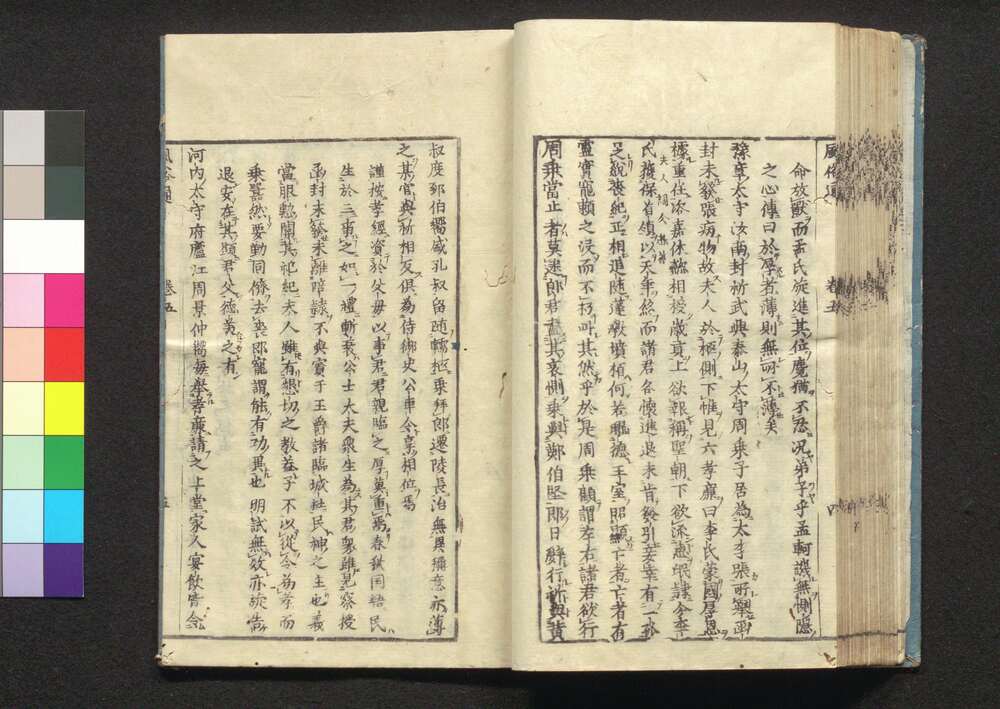 風俗通 卷五 四
命放獸而孟氏旋進其位麑猶不忍況弟子乎孟軻譏無惻隱
之心傳曰於厚者薄則無所不薄矣
豫章太守汝南封祈武興泰山太守周乘子居為太李張所舉函
封未發張病物故夫人於柩側下帷見六孝廉曰李氏蒙國厚恩
據重任咨嘉休懿相授歲貢上欲報稱聖朝下欲流惠氓隷今李
氏獲保首領以天年終而諸君各懷進退未肯發引妾幸有三孤
足統喪紀正相追隨蓬蓽墳栢何若曜德王室昭顯亡者亡者有
靈實寵賴之沒而不朽此其然乎於是周乘顧謂左右諸君欲行
周乘當止者莫逮郎君盡其哀惻乘與鄭伯堅即日辭行祈與黃
叔度郅伯嚮盛孔叔留随轜柩乘拜郎遷陵長治無異稱意亦薄
之其官與祈相反俱為侍御史公車令享相位焉
謹按孝經資於父母以事君君親臨之厚莫重焉春秋國語民
生於三事之如一禮斬衰公士大夫衆生為其君乘雖見察授
函封未發未離陪隷不與賓于王爵諸臨城社民神之主也義
當服勤關其祀紀夫人雖有懇切之教蓋子不以從令為孝而
乘囂然要勤同儕去喪即寵謂能有功異也明試無效亦旋告
退安在其顯君父德美之有
河內太守府廬江周景仲嚮每舉孝廉請之上堂家人宴飲皆令
卷五 五